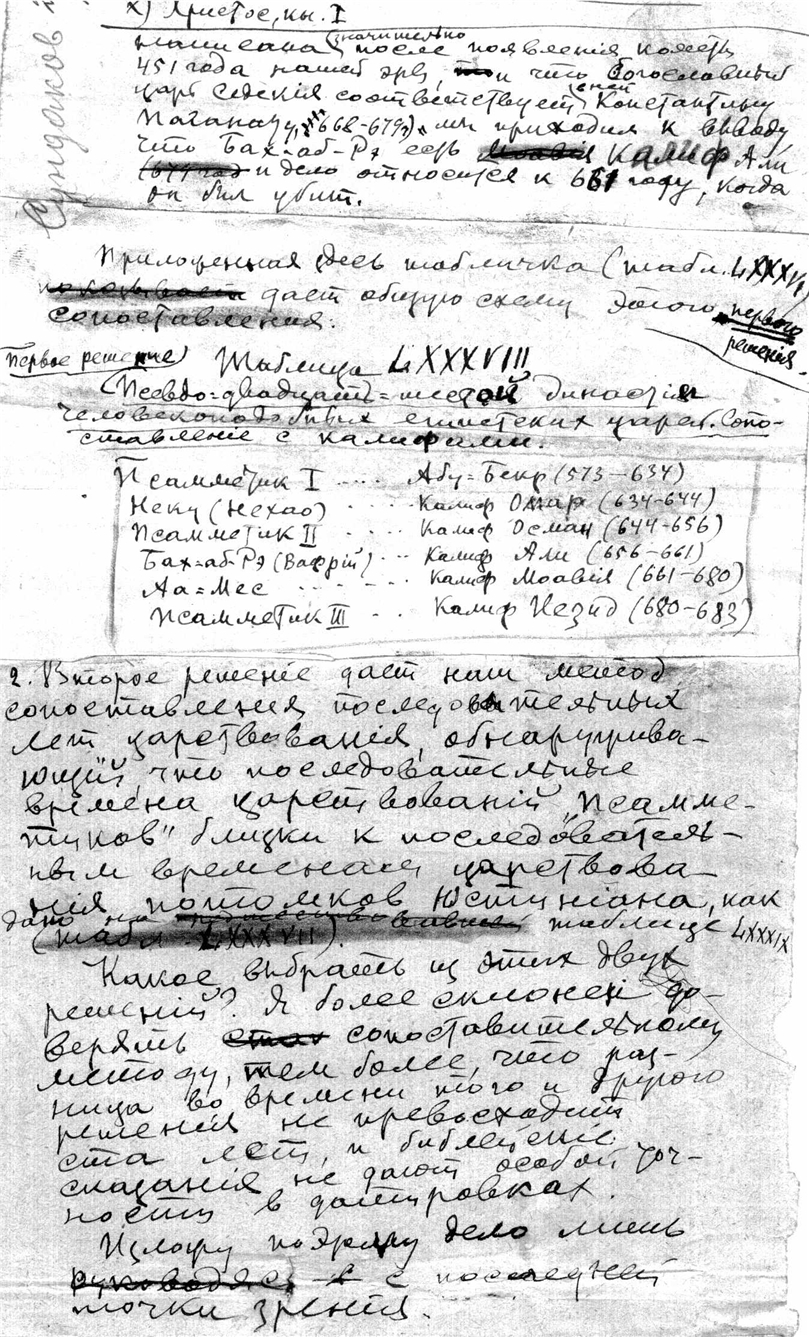 х) Христос, кн. I
написана значительно после появления кометы
451 года нашей эры, и что Богословный
царь Седекия соответствует Константину
Паганату (668-679), мы приходим к выводу
что Бах=аб-Рэ есть Калиф Али
и дело относится к 661 году, когда
он был убит.
Сундаков
Приложенная здесь табличка (табл. LXXXVIII)
дает общую схему этого первого
сопоставления.
решения.
Первое решение) Таблица LXXXVIII
(Псевдо=двадцать=шестой династия
человекоподобных египетских царей. Сопо-
ставление с калифами.
Псамметик I .... Абу=Бекр (573-634)
Неку (Нехао) .... Калиф Омар (634-644)
Псамметик II .... Калиф Осман (644-656)
Бах=аб-Рэ (Вафрій) ... Калиф Али (656-661)
Аа=Мес ..... Калиф Моавія (661-680)
Псамметик III .. Калиф Иезид (680-683)
2. Второе решеніе дает наш метод
сопоставления последовательных
лет царствованія, обнаружива-
ющій, что последовательные
времена царствованій „Псамме-
тиков" близки к последователь-
ным временам царствова-
ния потомков Юстиніана, как
дано на таблице LXXXIX
(табл. LXXXVII).
Какое выбрать из этих двух
решеній? Я более склонен до-
верять сопоставительному
методу, тем более, что раз-
ница во времени того и другого
решения не превосходит
ста лет, и библейскіе
сказанія не дают особой точ-
ности в датировках.
Изложу поэтому дело лишь
с последней
точки зрения.